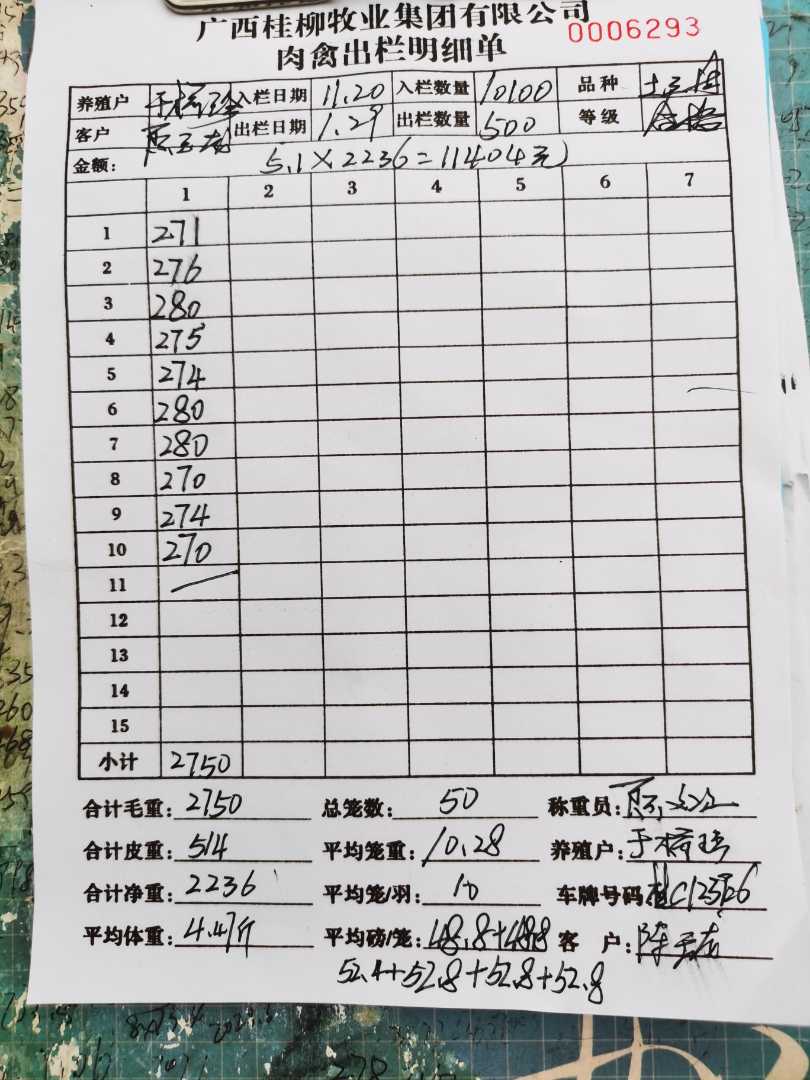 广西桂柳牧业集团有限公司
肉禽出栏明细单 0006293
养殖户 入栏日期 11.20 入栏数量 10100 品种
客户 出栏日期 1.29 出栏数量 500 等级 合格
金额: 5.1×2236=11404元
1 2 3 4 5 6 7
1 271
2 276
3 280
4 275
5 274
6 280
7 280
8 270
9 274
10 270
11
12
13
14
15
小计 2750
合计毛重: 2750 总笼数: 50 称重员:
合计皮重: 514 平均笼重: 10.28 养殖户:
合计净重: 2236 平均笼/羽: 10 车牌号码
平均体重: 4.47斤 平均磅/笼: 48.8+48.8 客 户:
52.4+52.8+52.8+52.8